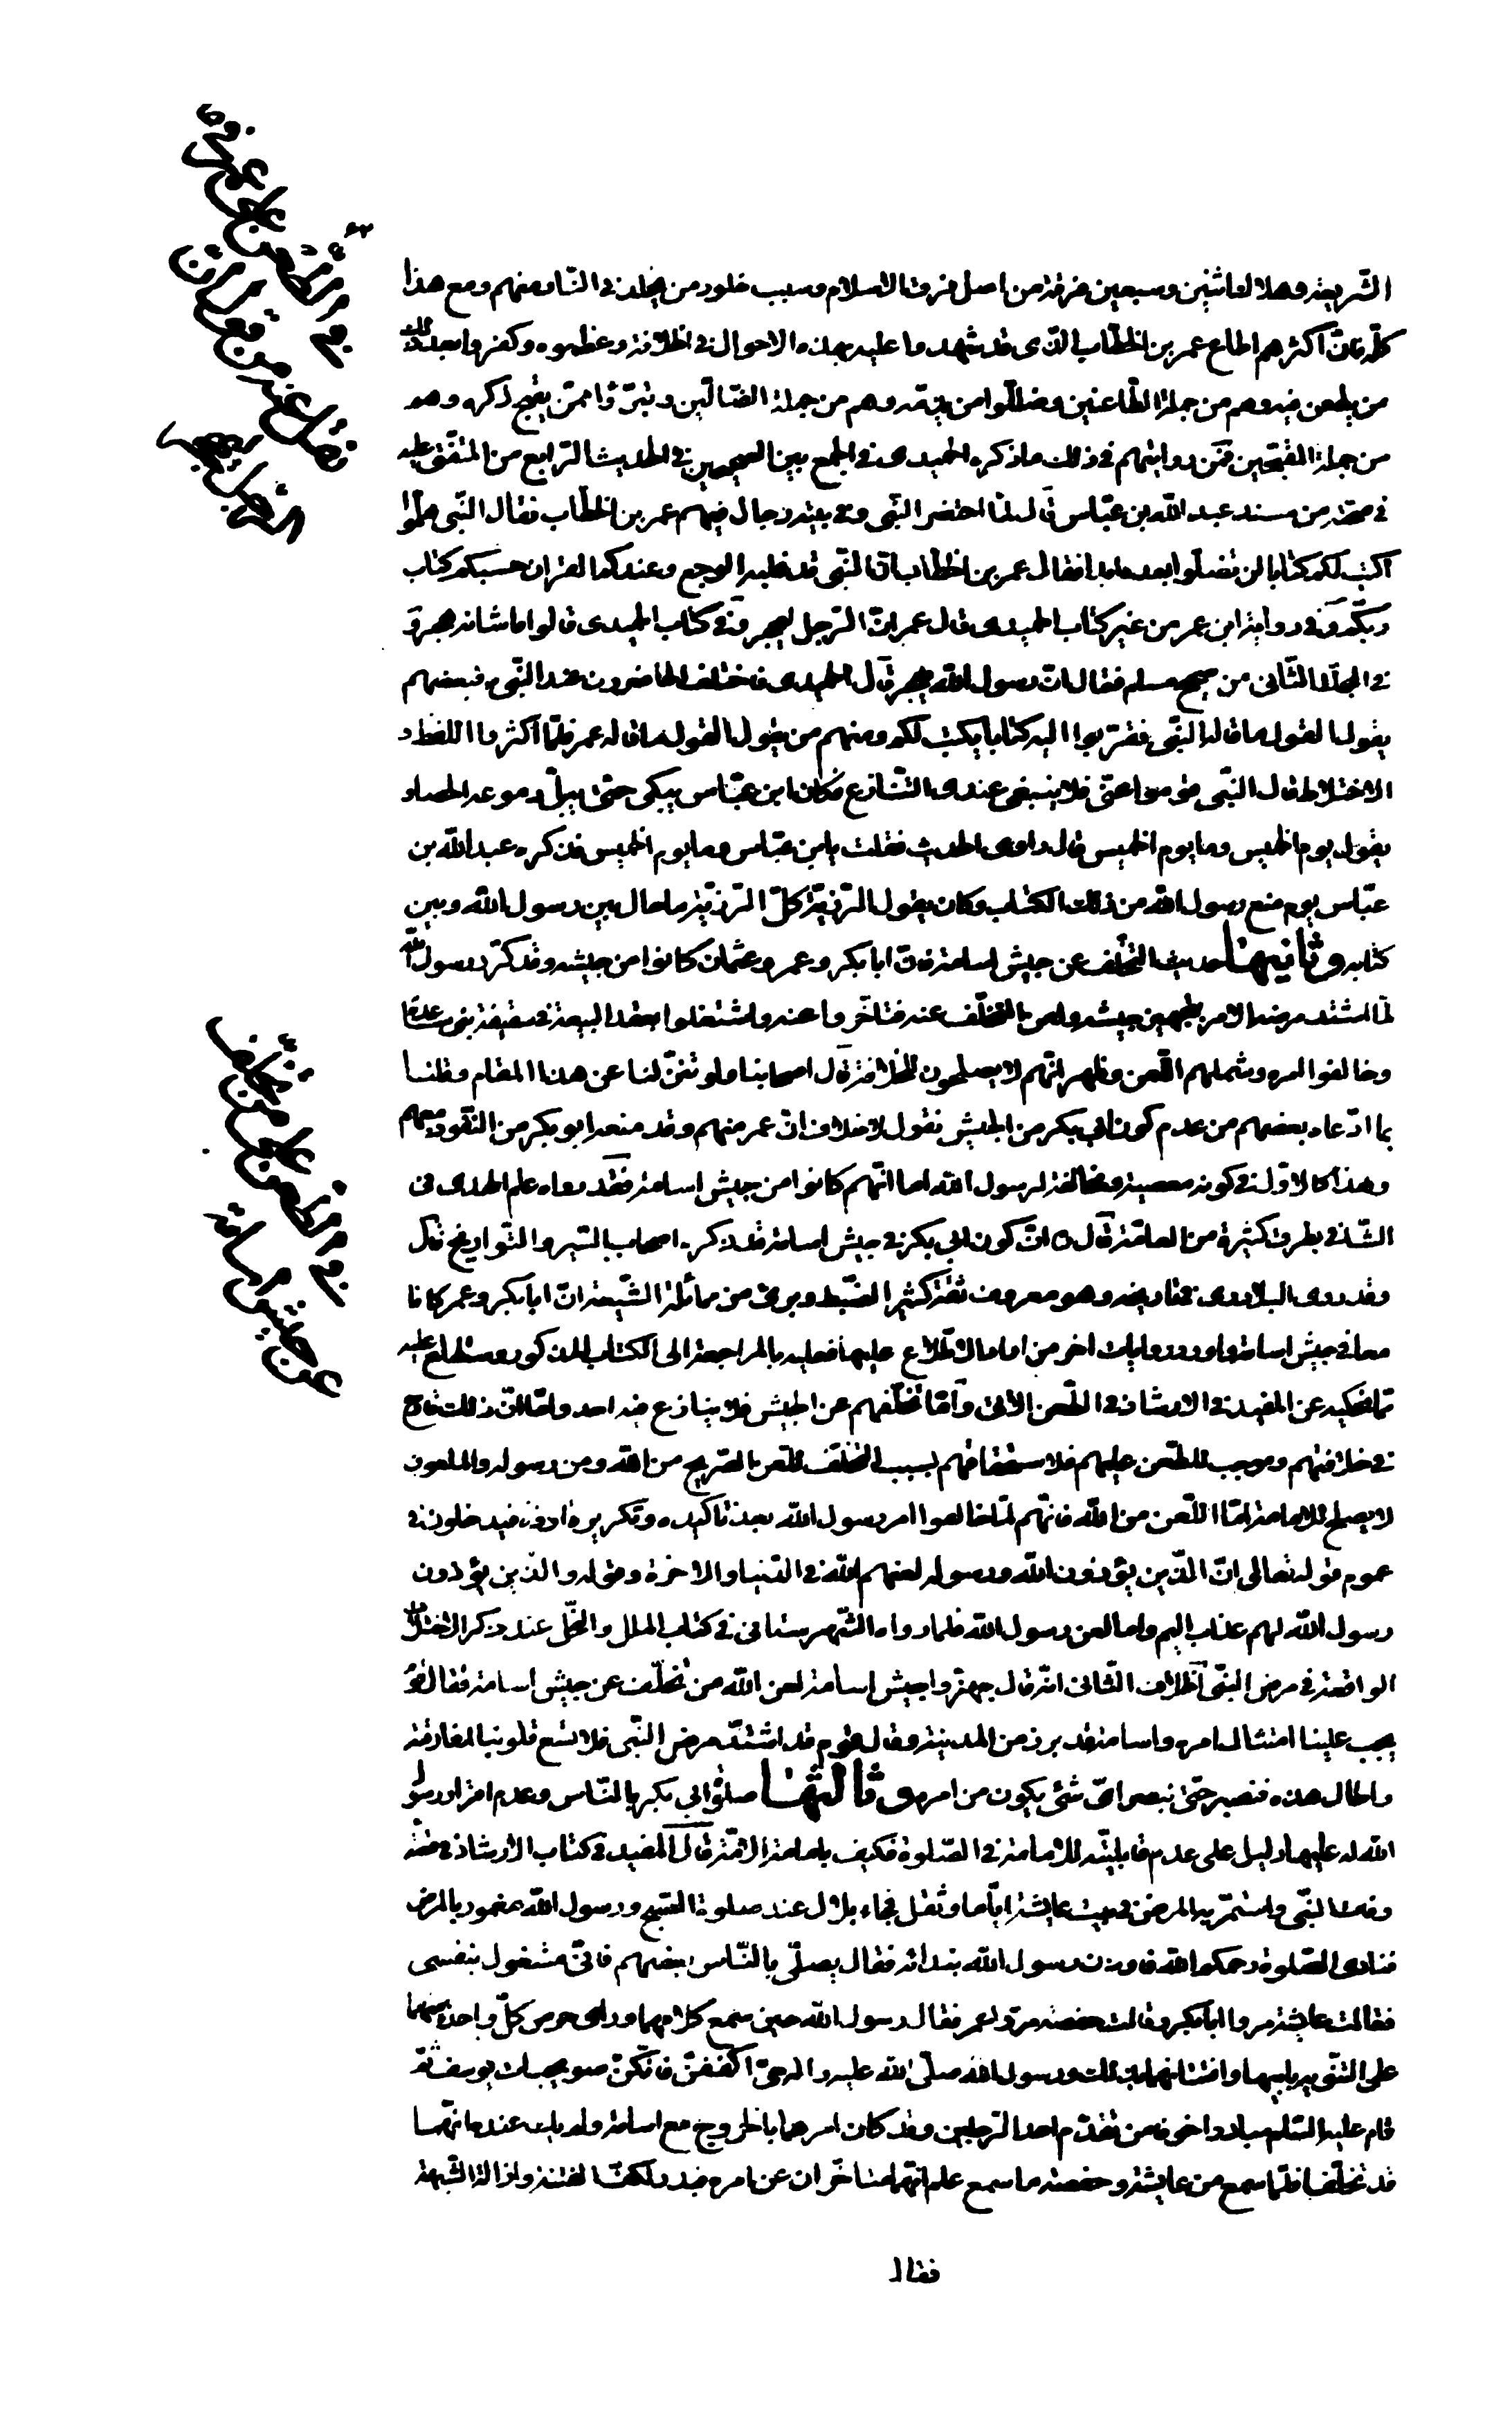 الشريعة وهلاك اثنين وسبعين فرقة من اصل فرق الاسلام وسبب خلود من يخلد في النار منهم ومع هذا
كله فان اكثرهم اطاع عمر بن الخطاب الذى قد شهدوا عليه بهذه الاحوال في الخلافة وعظموه وكفروا بعد ذلك
من يطعن فيه وهم من جملة الطاعنين وضللوا من يذمه وهم من جملة الضالين وتبرؤا ممن يقبح ذكره وهم
من جملة المقبحين فمن روايتهم في ذلك ما ذكره الحميدى في الجمع بين الصحيحين في الحديث الرابع من المتفق عليه
في صحته من مسند عبد الله بن عباس قال لما احتضر النبي وفي بيته رجال فيهم عمر بن الخطاب فقال النبي هلموا
اكتب لكم كتابا لن تضلوا بعده ابدا فقال عمر بن الخطاب ان النبي قد غلبه الوجع وعندكم القران حسبكم كتاب
ربكم وفي رواية ابن عمر من غير كتاب الحميدى قال عمر ان الرجل ليهجر وفي كتاب الحميدى قالوا ما شانه هجر و
في المجلد الثاني من صحيح مسلم فقال ان رسول الله يهجر قال الحميدى فاختلف الحاضرون عند النبي فبعضهم
يقول القول ما قاله النبي فقربوا اليه كتابا يكتب لكم ومنهم من يقول القول ما قاله عمر فلما اكثروا اللغط و
الاختلاط قال النبي قوموا عنى فلا ينبغي عندى التنازع فكان ابن عباس يبكى حتى يبل دموعه الحصاء و
يقول يوم الخميس وما يوم الخميس قال راوى الحديث فقلت يابن عباس وما يوم الخميس فذكره عبد الله بن
عباس يوم منع رسول الله من ذلك الكتاب وكان يقول الرزية كل الرزية ما حال بين رسول الله وبين
كتابه وثانيها حديث التخلف عن جيش اسامة فان ابا بكر وعمر وعثمان كانوا من جيشه وقد كرر رسول الله
لما اشتد مرضه الامر بتجهيز جيشه ولعن المتخلف عنه فتاخروا عنه واشتغلوا بعقد البيعة في سقيفة بني ساعدة
وخالفوا امره وشملهم اللعن وظهر انهم لا يصلحون للخلافة قال اصحابنا ولو تنزلنا عن هذا المقام وقلنا
بما ادعاه بعضهم من عدم كون ابي بكر من الجيش نقول لا خلاف ان عمر منهم وقد منعه ابو بكر من النفوذ معهم
وهذا كالاول في كونه معصية ومخالفة لرسول الله اما انهم كانوا من جيش اسامة فقد رواه علم الهدى في
الشافي بطرق كثيرة من العامة قال ان كون ابي بكر في جيش اسامة قد ذكره اصحاب السير والتواريخ قال
وقد روى البلاذرى في تاريخه وهو معروف ثقة كثير الضبط وبرئ من ممائلة الشيعة ان ابا بكر وعمر كانا
معا في جيش اسامة واورد روايات اخر من اراد الاطلاع عليها فعليه بالمراجعة الى الكتاب المذكور وستطلع عليه
مما نحكيه عن المفيد في الارشاد في الطعن الاتى واما تخلفهم عن الجيش فلا ينازع فيه احد واما ان ذلك قادح
في خلافتهم وموجب للطعن عليهم فلاستحقاقهم بسبب التخلف اللعن الصريح من الله ومن رسوله والملعون
لا يصلح للامامة اما اللعن من الله فانهم لما خالفوا امر رسول الله بعد تاكيده وتكريره اذوه فيدخلون في
عموم قوله تعالى ان الذين يؤذون الله ورسوله لعنهم الله في الدنيا والاخرة وقوله والذين يؤذون
رسول الله لهم عذاب اليم واما لعن رسول الله فلما رواه الشهرستاني في كتاب الملل والنحل عند ذكر الاختلاف
الواقعة في مرض النبي الخلاف الثاني انه قال جهزوا جيش اسامة لعن الله من تخلف عن جيش اسامة فقال قوم
يجب علينا امتثال امره واسامة قد برز من المدينة وقال قوم قد اشتد مرض النبي فلا تسع قلوبنا لمفارقته
والحال هذه فنصبر حتى نبصر اى شئ يكون من امره وثالثها صلوة ابي بكر بالناس وعدم اقرار رسول
الله له عليها دليل على عدم قابليته للامامة في الصلوة فكيف بامامة الامة قال المفيد في كتاب الارشاد في قصة
وفات النبي واستمر به المرض في بيت عايشة اياما وثقل فجاء بلال عند صلوة الصبح ورسول الله مغمور بالمرض
فنادى الصلوة رحمكم الله فاوذن رسول الله بندائه فقال يصلى بالناس بعضهم فانى مشغول بنفسى
فقالت عايشة مروا ابا بكر وقالت حفصة مروا عمر فقال رسول الله حين سمع كلامهما وراى حرص كل واحدة منهما
على التنويه بابيها وافتتانهما بذلك ورسول الله صلى الله عليه واله حي اكففن فانكن صويحبات يوسف ثم
قام عليه السلم مبادرا خوفا من تقدم احد الرجلين وقد كان امرهما بالخروج مع اسامة ولم يك عنده انهما
قد تخلفا فلما سمع من عايشة وحفصة ما سمع علم انهما متاخران عن امره فبدر لكف الفتنة وازالة الشبهة
فقال